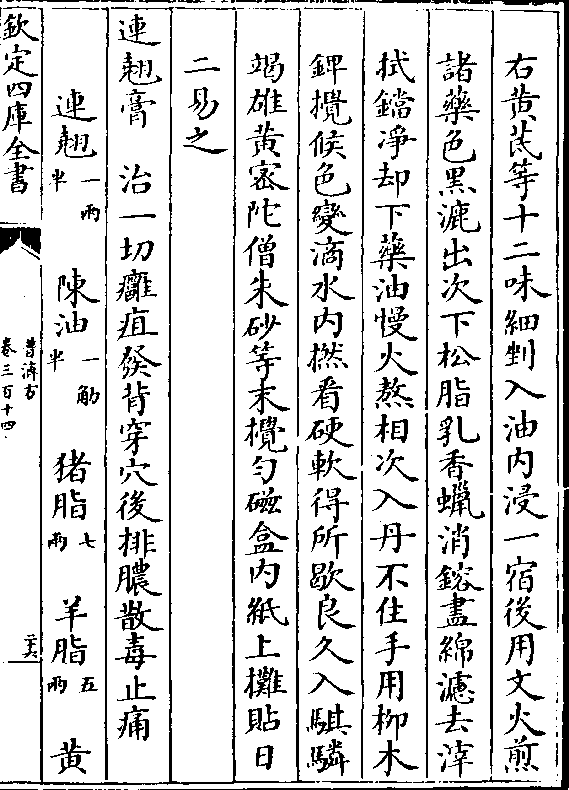 右黄芪等十二味細剉入油内浸一宿後用文火煎
諸藥色黑漉出次下松脂乳香蠟消鎔盡綿濾去滓
拭鐺凈却下藥油慢火熬相次入丹不住手用柳木
鎞攪候色變滴水内撚看硬軟得所歇良久入騏驎
竭雄黄宻陀僧朱砂等末攪匀磁盒内紙上攤貼日
二易之
連翹膏　治一切癰疽發背穿穴後排膿散毒止痛
連翹一兩半　陳油一觔半　猪脂七兩　羊脂五兩　黄
欽定四庫全書
普濟方
卷三百十四
二六